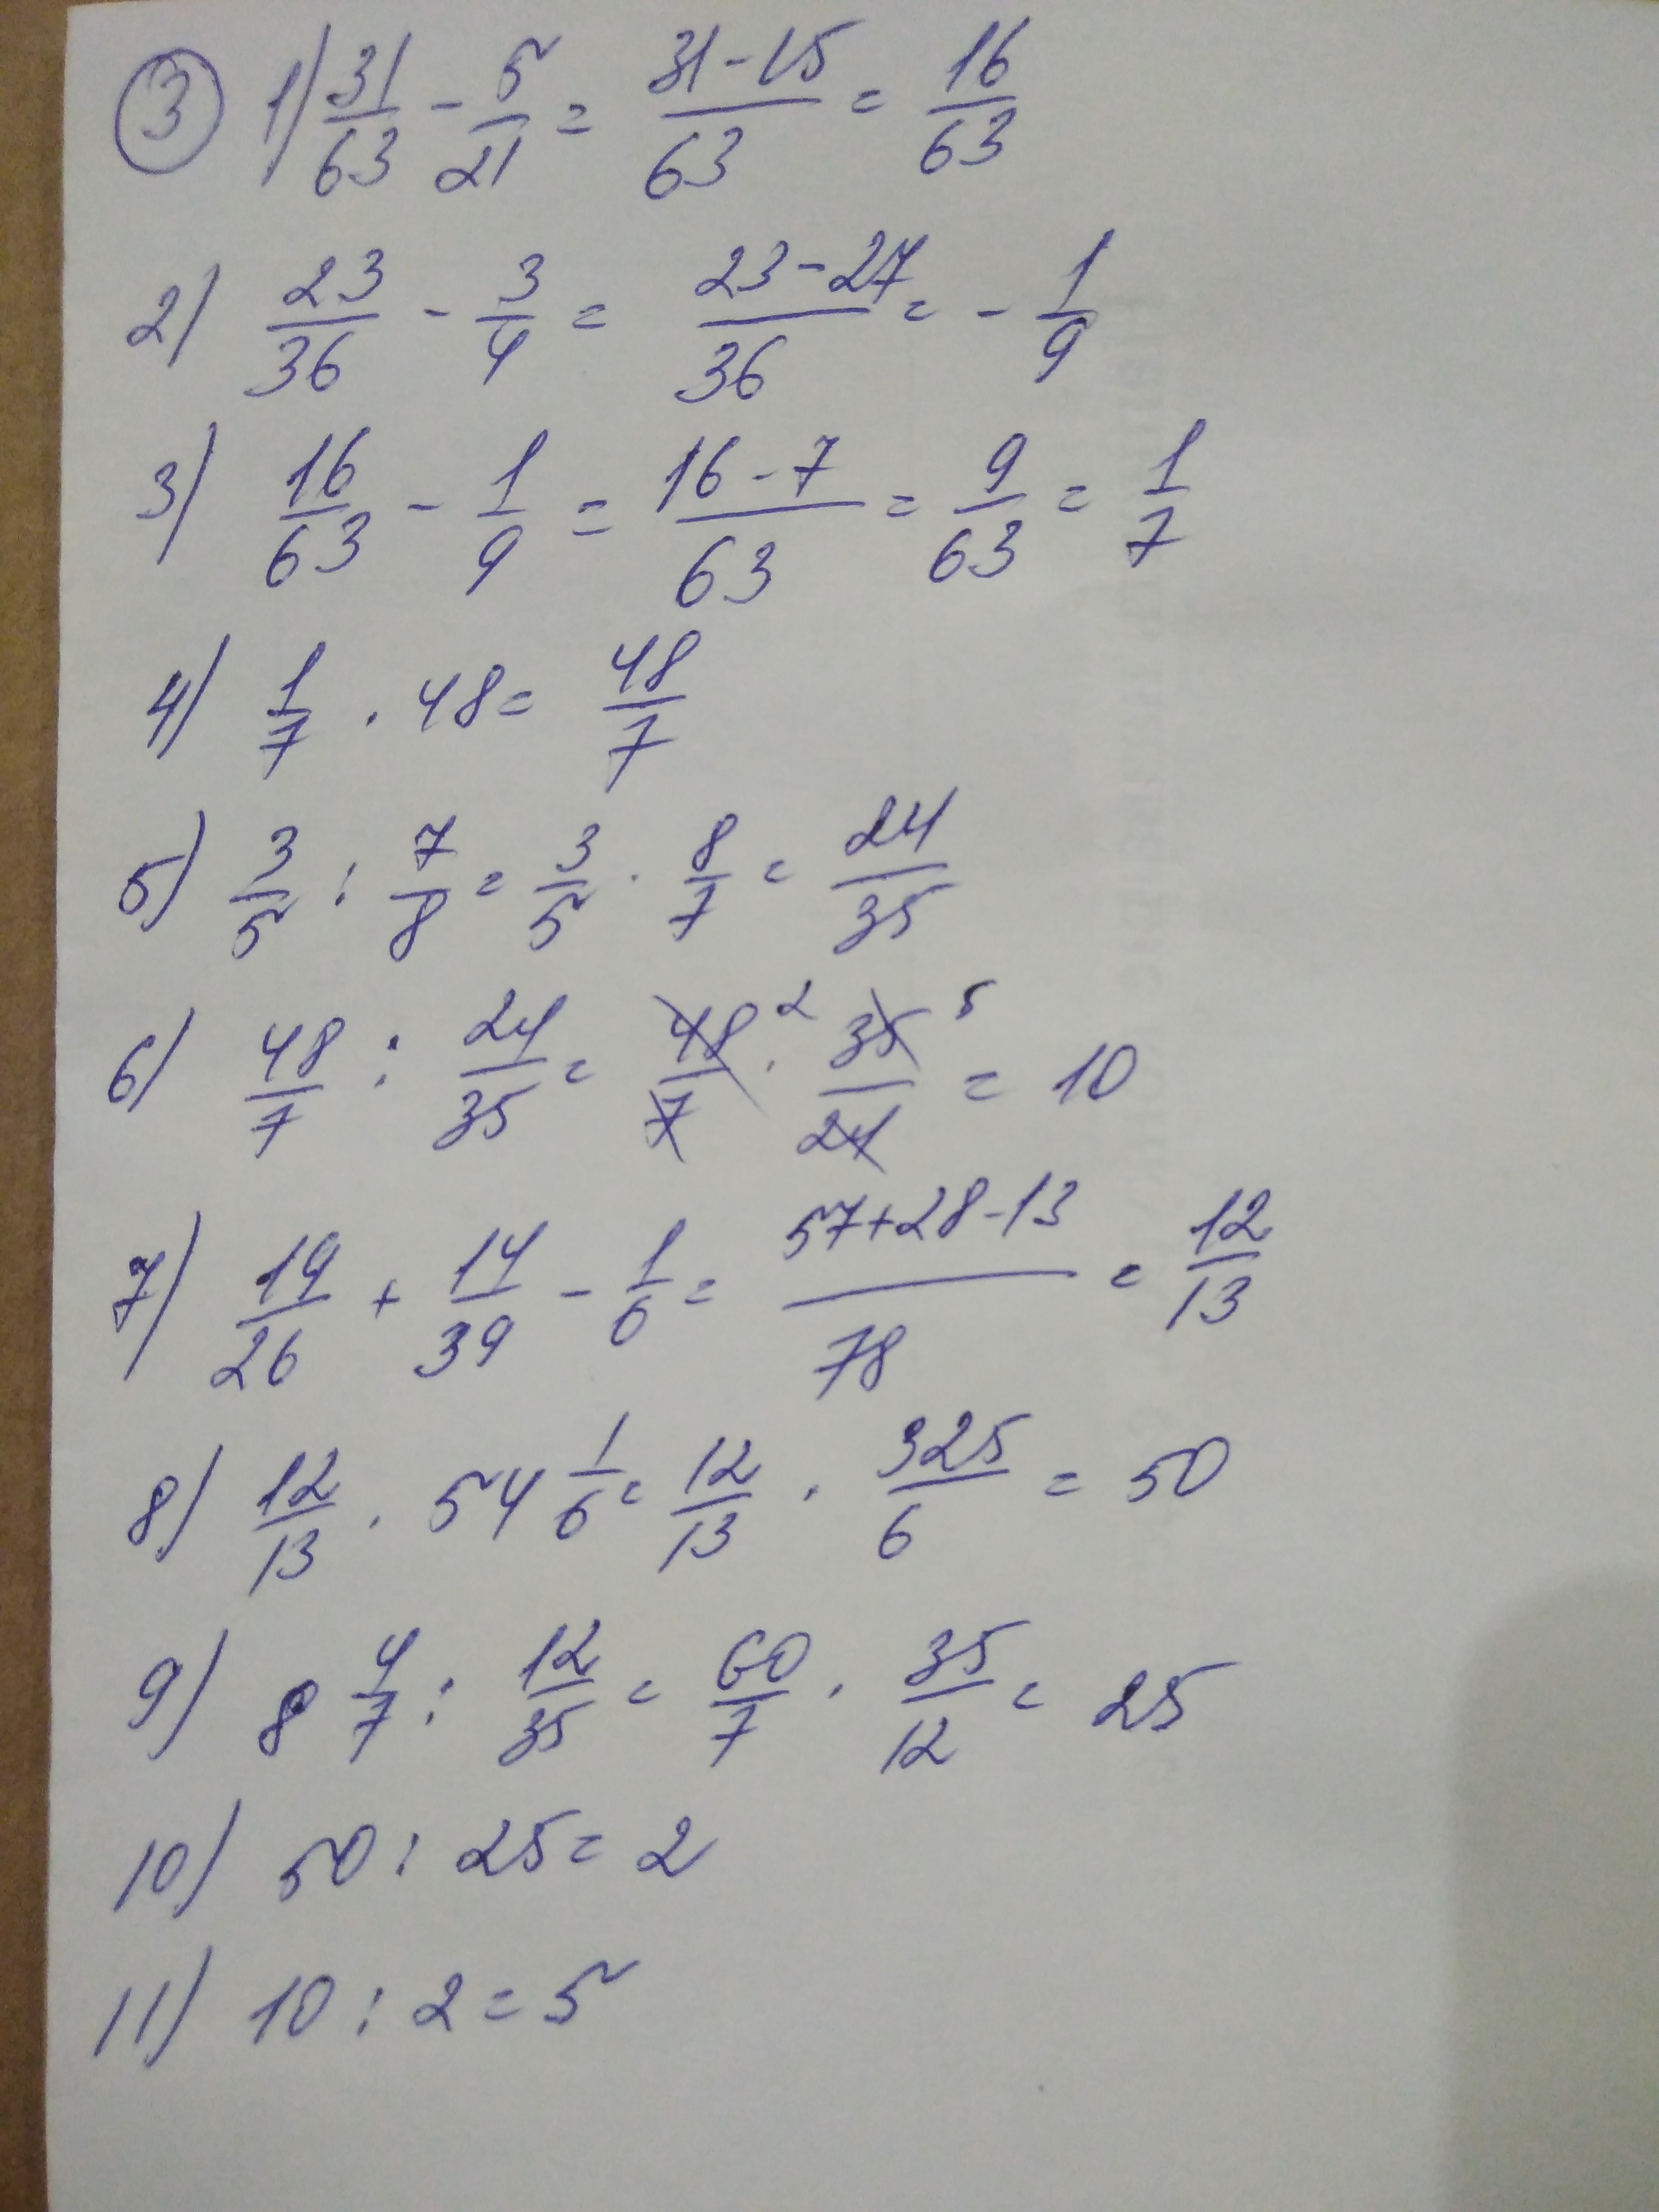 ③ 1) 31/63 - 5/21 = (31-15)/63 = 16/63
2) 23/36 - 3/4 = (23-27)/36 = - 1/9
3) 16/63 - 1/9 = (16-7)/63 = 9/63 = 1/7
4) 1/7 · 48 = 48/7
5) 3/5 : 7/8 = 3/5 · 8/7 = 24/35
6) 48/7 : 24/35 = 48/7 2 · 35/24 5 = 10
7) 19/26 + 14/39 - 1/6 = (57+28-13)/78 = 12/13
8) 12/13 · 54 1/6 = 12/13 · 325/6 = 50
9) 8 4/7 : 12/35 = 60/7 · 35/12 = 25
10) 50 : 25 = 2
11) 10 : 2 = 5